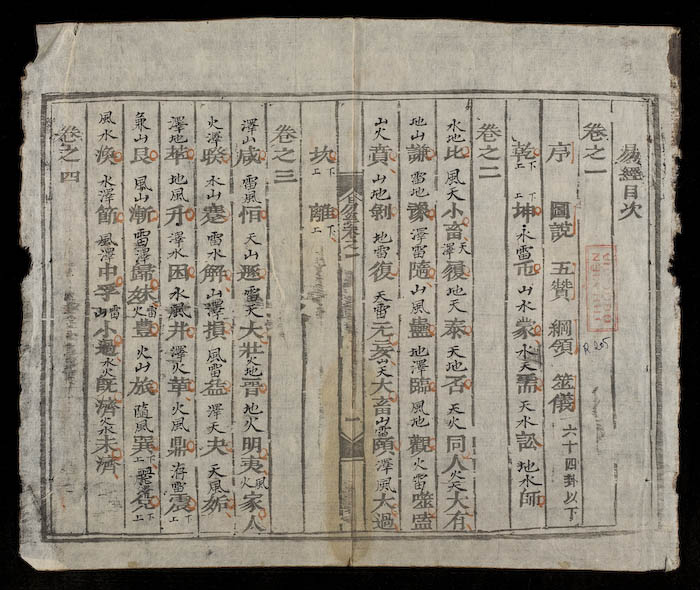 易經目次
卷之一
序 圖說 五贊 綱領 筮儀 六十四卦以下
乾上下 坤上下 水雷屯 山水蒙 水天需 天水訟 地水師
卷之二
水地比 風天小畜 天澤履 地天泰 天地否 天火同人 火天大有
地山謙 雷地豫 澤雷隨 山風蠱 地澤臨 風地觀 火雷噬嗑
山火賁 山地剝 地雷復 天雷无妄 山天大畜 山雷頤 澤風大過
坎上下 離上下
易經卷之一 一
卷之三
澤山咸 雷風恒 天山遯 雷天大壯 火地晋 地火明夷 風火家人
火澤睽 水山蹇 雷水解 山澤損 風雷益 澤天夬 天風姤
澤地萃 地風升 澤水困 水風井 澤火革 火風鼎 洊雷震上下
兼山艮上下 風山漸 雷澤歸妹 雷火豐 火山旅 隨風巽上下 麗澤兌上下
風水渙 水澤節 風澤中孚 雷山小過 水火既濟 火水未濟
卷之四